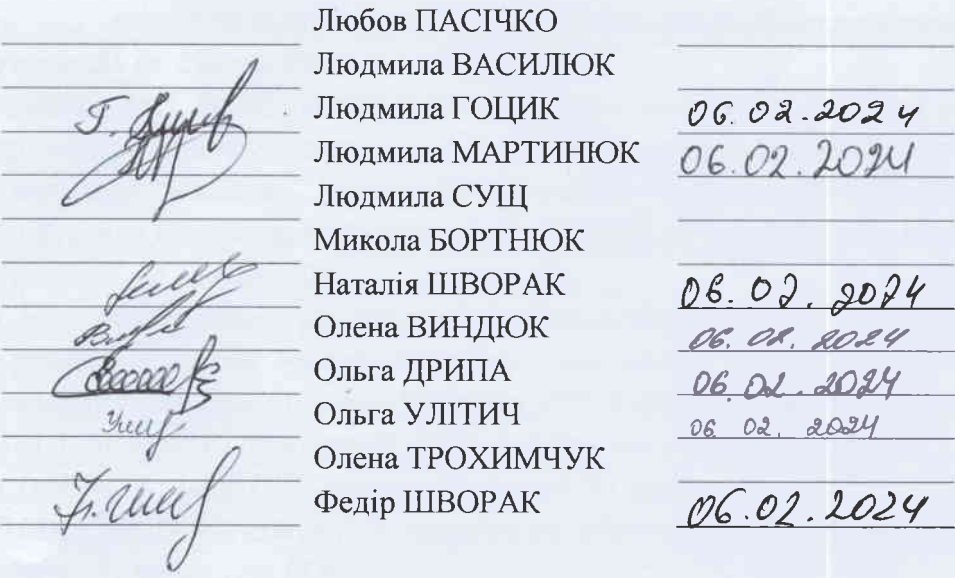 Любов ПАСІЧКО
Людмила ВАСИЛЮК
Людмила ГОЦИК 06.02.2024
Людмила МАРТИНЮК 06.02.2024
Людмила СУЩ
Микола БОРТНЮК
Наталія ШВОРАК 06.02.2024
Олена ВИНДЮК 06.02.2024
Ольга ДРИПА 06.02.2024
Ольга УЛІТИЧ 06 02. 2024
Олена ТРОХИМЧУК
Федір ШВОРАК 06.02.2024